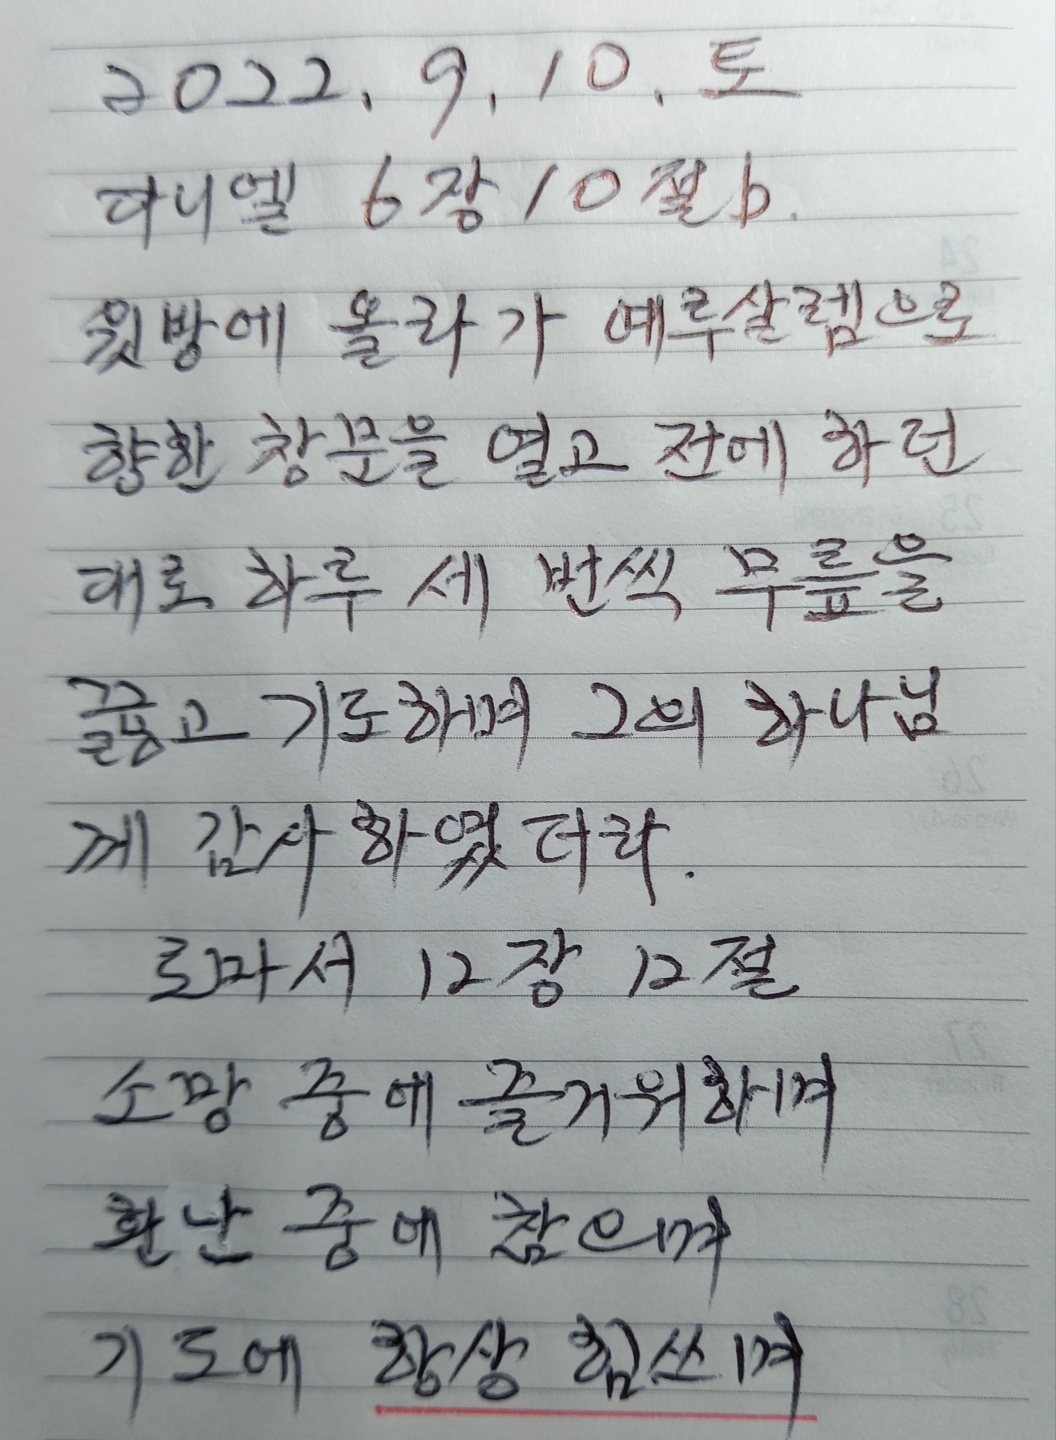 2022. 9. 10. 토
다니엘 6장 10절 b.
윗방에 올라가 예루살렘으로
향한 창문을 열고 전에 하던
대로 하루 세 번씩 무릎을
꿇고 기도하며 그의 하나님
께 감사하였더라.
로마서 12장 12절
소망 중에 즐거워하며
환난 중에 참으며
기도에 항상 힘쓰며